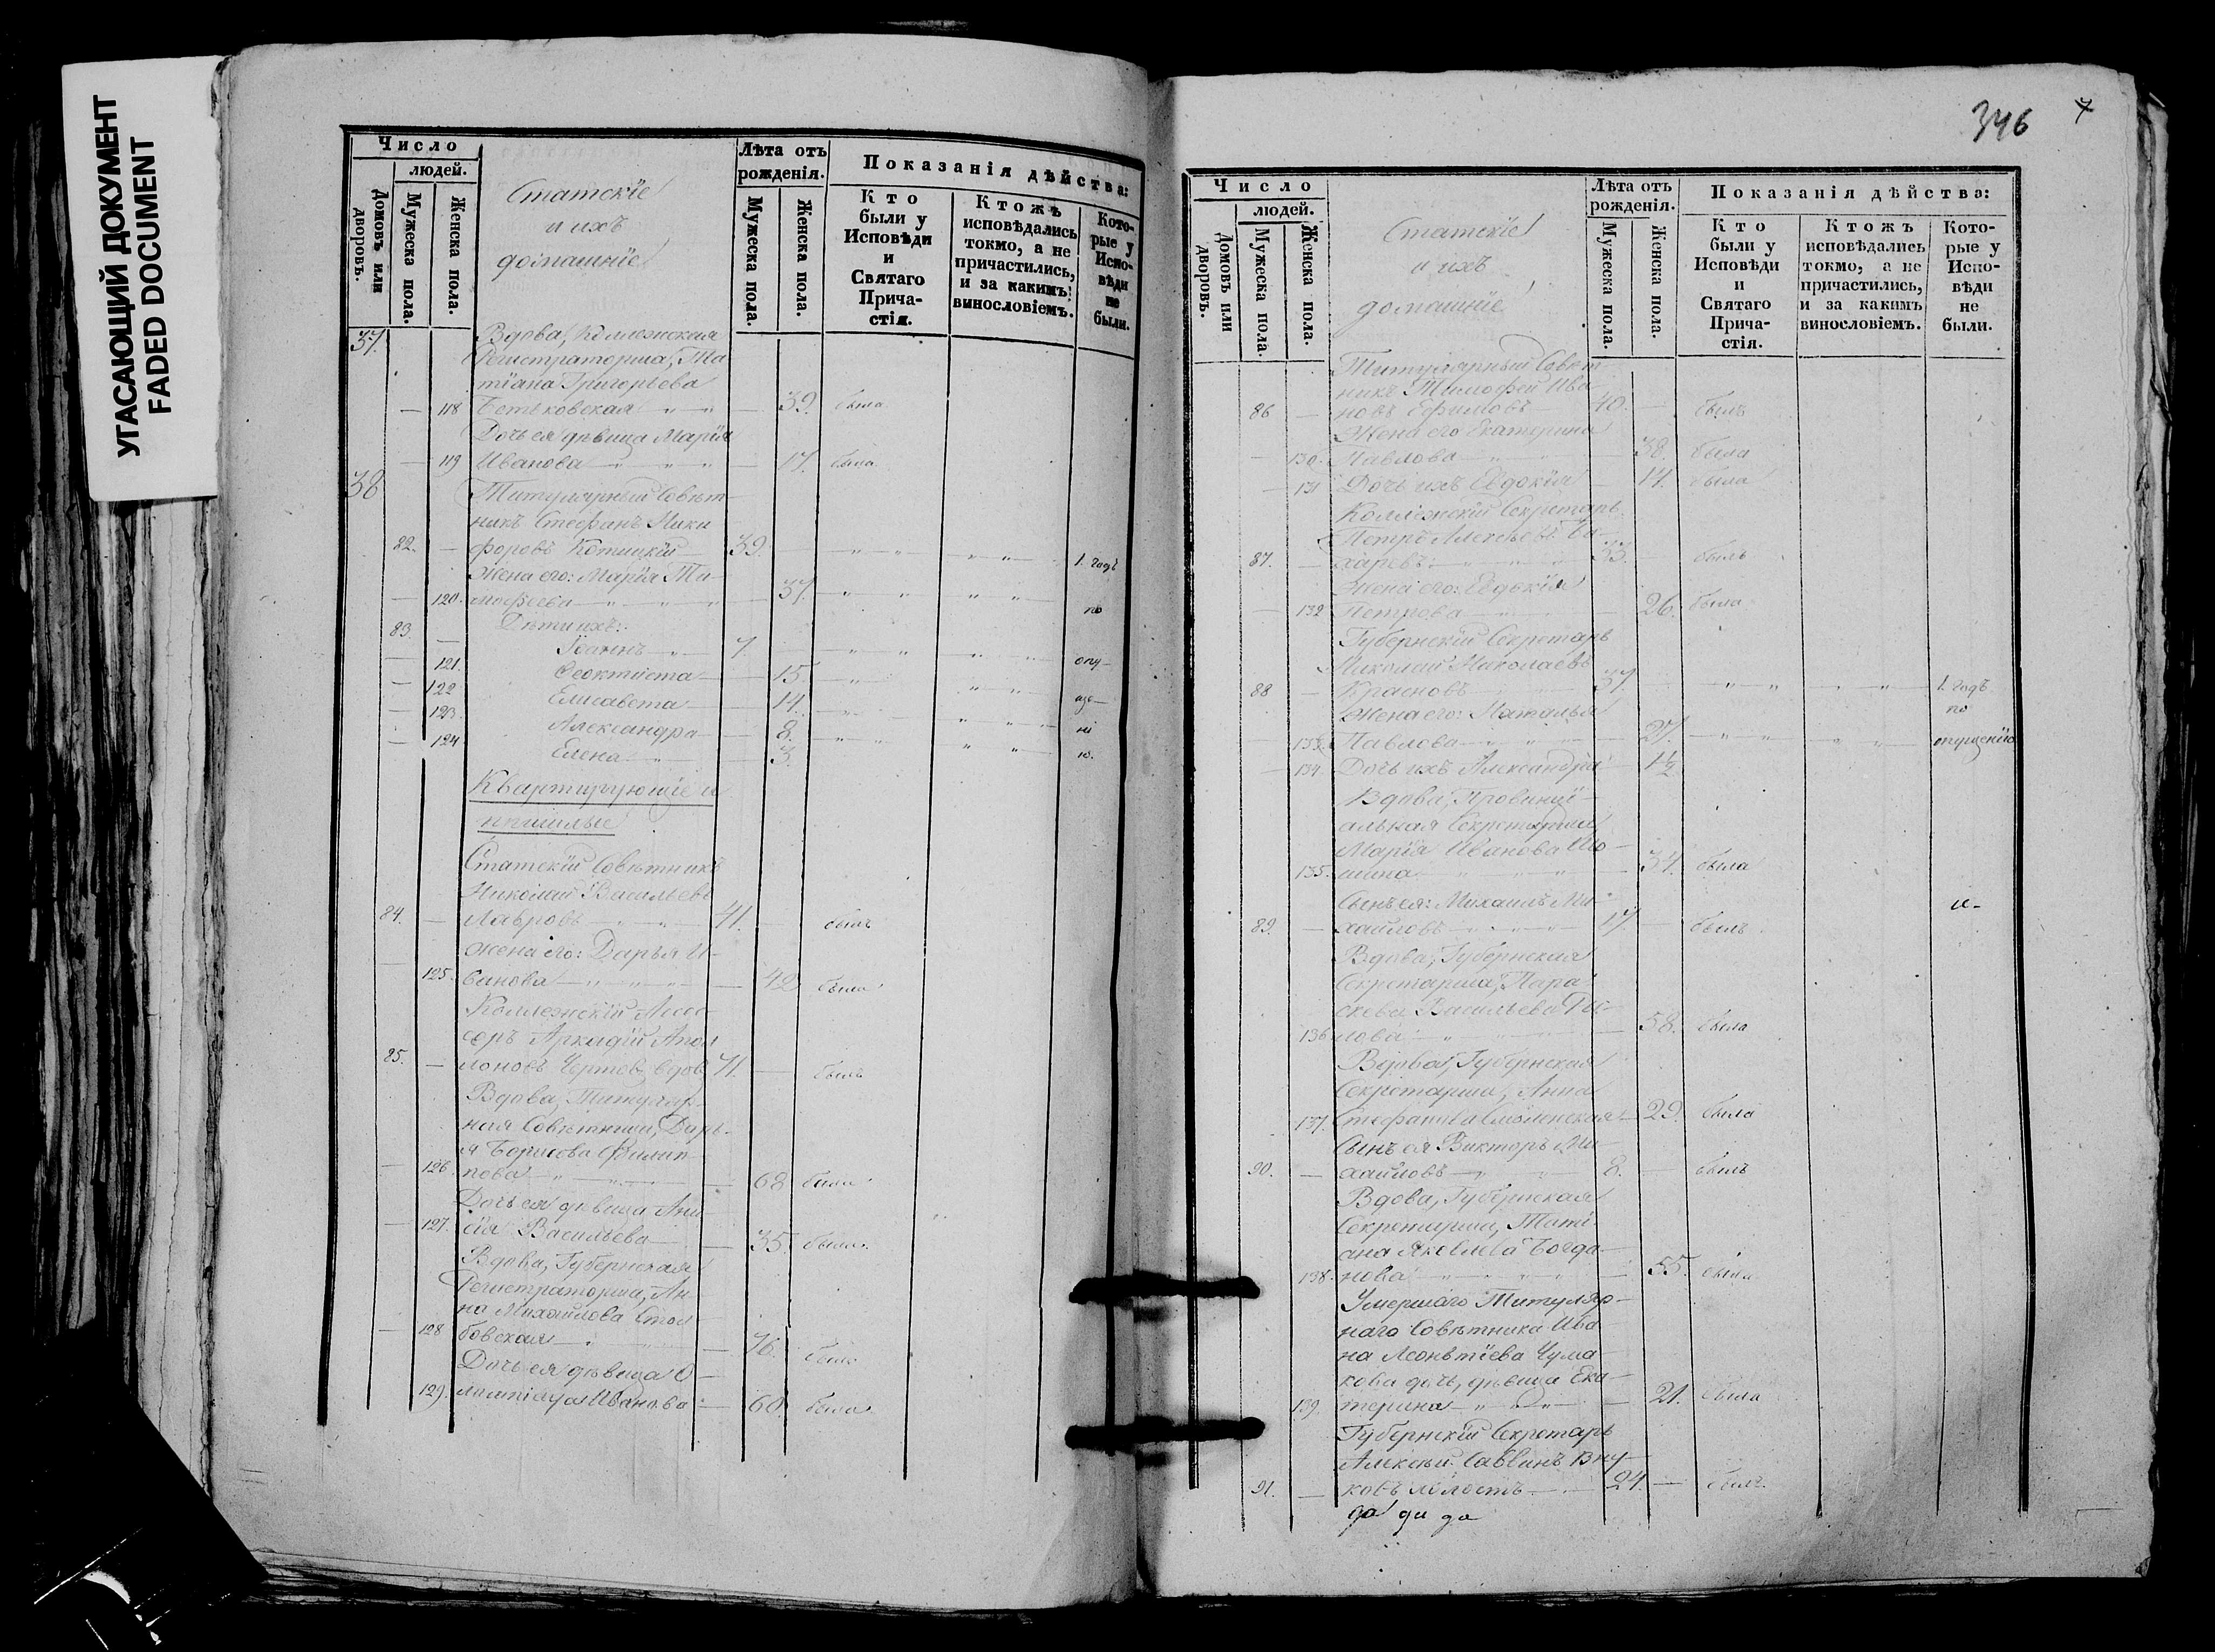 УГАСАЮЩИЙ ДОКУМЕНТ
FADED DOCUMENT
Число
людей.
Домовъ или дворовъ.
Мужеска пола.
Женска пола.
Статскіе
и ихъ
домашніе
Лѣта отъ
рожденія.
Мужеска пола.
Женска пола.
Показанія дѣйства:
Кто
были у
Исповѣди
и
Святаго
Прича-
стія.
Ктожъ
исповѣдались
токмо, а не
причастились,
и за какимъ
винословіемъ.
Кото-
рые у
Испо-
вѣди
не
были.
37. Вдова, Коллежская
Регистраторша, Та
тіана Григорьева
— 118 — 39. была
Дочь ея дѣвица Марія
— 119 Иванова — 17. была
38 Титулярный Совѣт-
никъ Стефанъ Ники
82. — форовъ 39. 1. годъ
Жена его: Марія Ти-
— 120. мофеева — 37. по
83. — Дѣти ихъ:
Іоаннъ 7
— 121. Феоктиста — 15. опу-
— 122 Елисавета — 14. ще-
— 123. Александра — 8. ні
— 124 Елена — 3. ю.
Квартирующіе и
пришлые
Статскій Совѣтникъ
Николай Васильевъ
84. — Лавровъ 41. — былъ
Жена его: Дарья И-
— 125. ванова — 42 была
Коллежскій Ассес-
соръ Аркадій Апол
85. — лоновъ Чертовъ, вдов. 71. — былъ
Вдова, Титуляр-
ная Совѣтница, Дарь-
я Борисова Филип-
— 126. пова — 68 была
Дочь ея дѣвица Ани
— 127. сія Васильева — 35. была
Вдова, Губернская
Регистраторша, Ан-
на Михайлова Стол-
— 128 бовская — 76. была
Дочь ея дѣвица О-
— 129. лимпіада Иванова — 60. была
346
7
Число
людей.
Домовъ или дворовъ.
Мужеска пола.
Женска пола.
Статскіе
и ихъ
домашніе
Лѣта отъ
рожденія.
Мужеска пола.
Женска пола.
Показанія дѣйства:
Кто
были у
Исповѣди
и
Святаго
Прича-
стія.
Ктожъ
исповѣдались
токмо, а не
причастились,
и за какимъ
винословіемъ.
Кото-
рые у
Испо-
вѣди
не
были.
Титулярный Совѣт-
никъ Тимофей Ива-
86 — новъ Ефимовъ 40. — былъ
Жена его Екатерина
— 130. Павлова — 38. была
— 131 Дочь ихъ Евдокія — 14. была
Коллежскій Секретарь
Петръ Алексѣевъ
87. — 33. — былъ
Жена его: Евдокія
— 132 Петрова — 26. была
Губернскій Секретарь
Николай Николаевъ
88 — Красновъ 37. — 1. годъ
Жена его: Наталья по
— 133. Павлова — 27. опущенію
— 134. Дочь ихъ Александра — 1½
Вдова, Провинці-
альная Секретарша
Марія Иванова
135. — 34. была
Сынъ ея: Михаилъ Ми-
89. — хайловъ 17. — былъ
Вдова, Губернская
Секретарша, Пара-
скева Васильева
136 — 58. была
Вдова, Губернская
Секретарша, Анна
137. Стефанова Смоленская — 29. была
Сынъ ея Викторъ Ми-
90. — хайловъ 8. — былъ
Вдова, Губернская
Секретарша, Тати-
ана Яковлева Богда-
138. нова — 55. была
Умершаго Титуляр-
наго Совѣтника Ива-
на Леонтіева Чума-
кова дочь, дѣвица Ека-
139. терина — 21. была
Губернскій Секретарь
Алексѣй Саввинъ Вну-
91. — ковъ холостъ 24. — былъ.
да да да